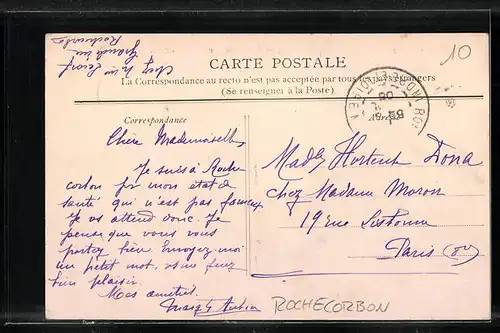 CARTE POSTALE
La Correspondance au recto n'est pas acceptée par tous les pays étrangers
(Se renseigner à la Poste)
10
Correspondance
Chère Mademoiselle
Je suis à Roche
corbon pr mon état de
santé qui n'est pas fameux
Je vs attend donc. Je
pense que vous vous
portez bien Envoyez-moi
un petit mot, vs me ferez
bien plaisir.
Mes amitiés
Madlle Hortense Dona
chez Madame Moron
19 rue Lisbonne
Paris
ROCHECORBON